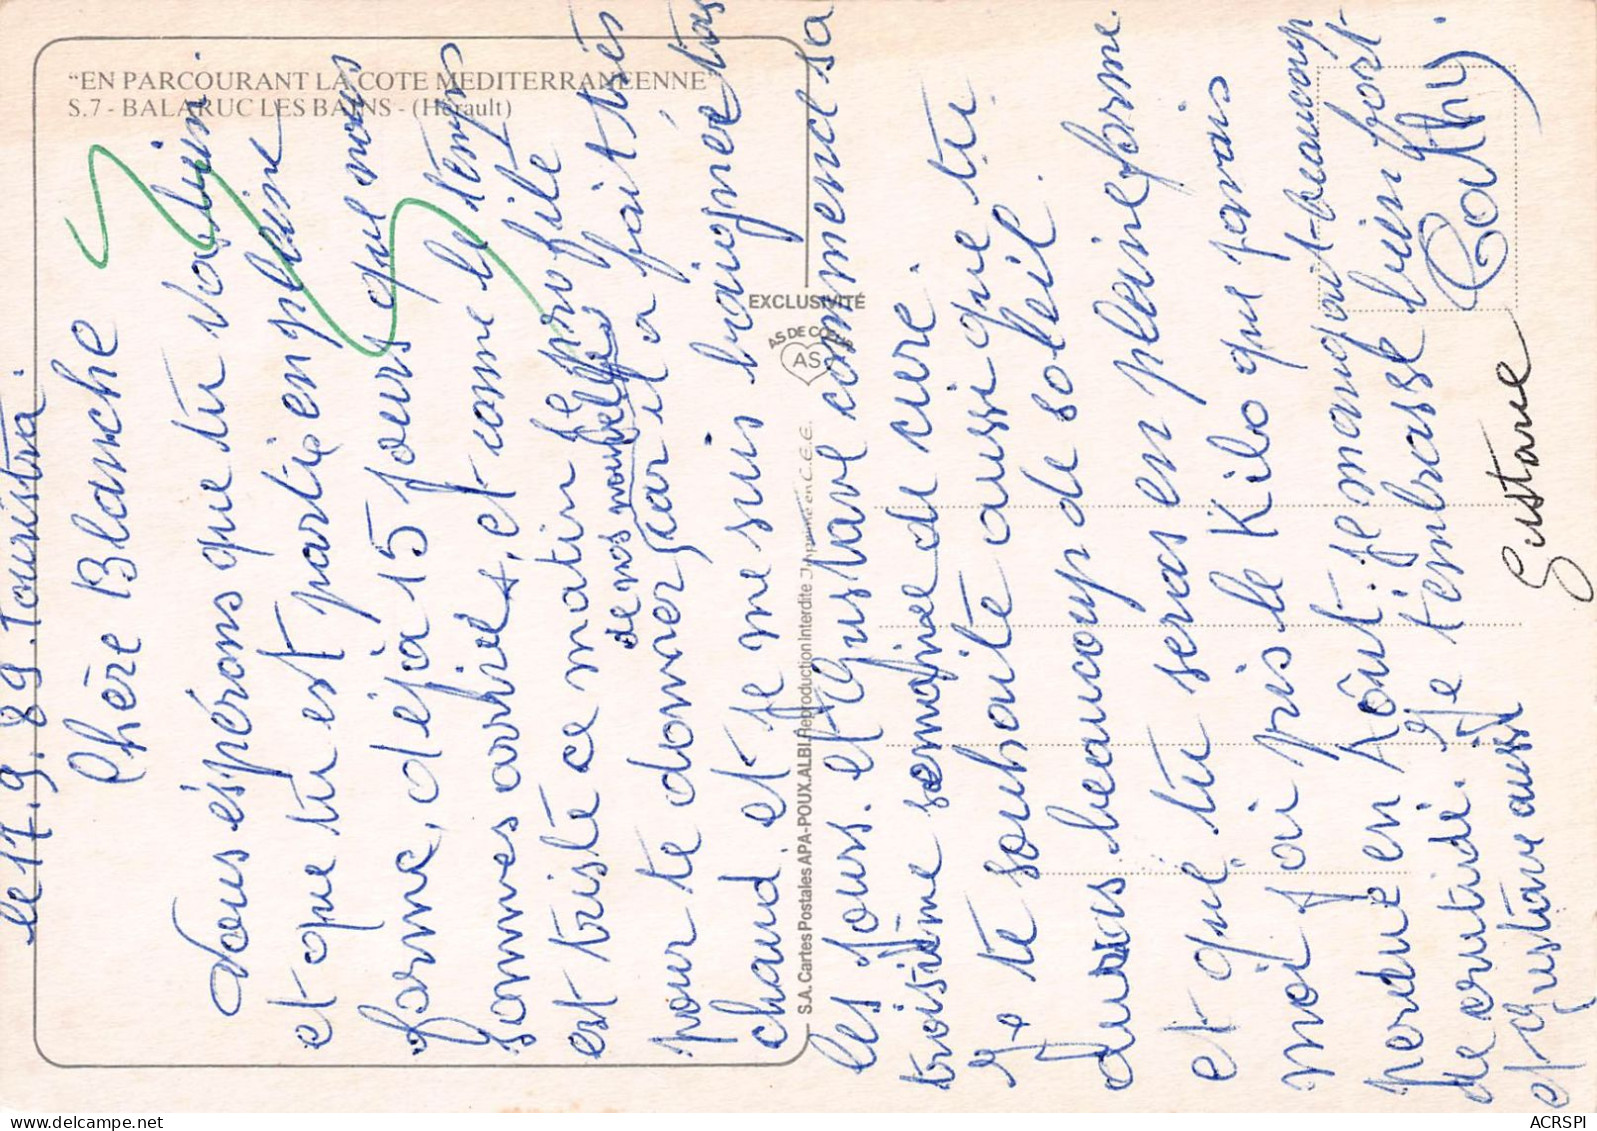 "EN PARCOURANT LA COTE MEDITERRANEENNE"
S.7 - BALARUC LES BAINS - (Hérault)
EXCLUSIVITÉ
AS DE CŒUR
AS
S.A. Cartes Postales APA-POUX. ALBI. Reproduction Interdite Imprimé en C.E.E.
le 17.9.89. Touristra.
Chère Blanche
Nous éspérons que tu vas bien
et que tu est partie en pleine
forme, déjà 15 jours que nous
sommes arrivés, et come le temps
est triste ce matin je profite
de nos nouvelles
pour te donner car il a fait très
chaud. et je me suis baignée tous
les jours. et Gustave commence sa
troisième semaine de cure.
Je te souhaite aussi que tu
auras beaucoup de soleil.
et que tu seras en pleine forme
moi j'ai pris le Kilo que j'avais
perdue en Aôut. je mangait beaucoup
de crudité. Je t'embrasse bien fort.
et Gustave aussi
Cathy.
Gustave
ACRSPI